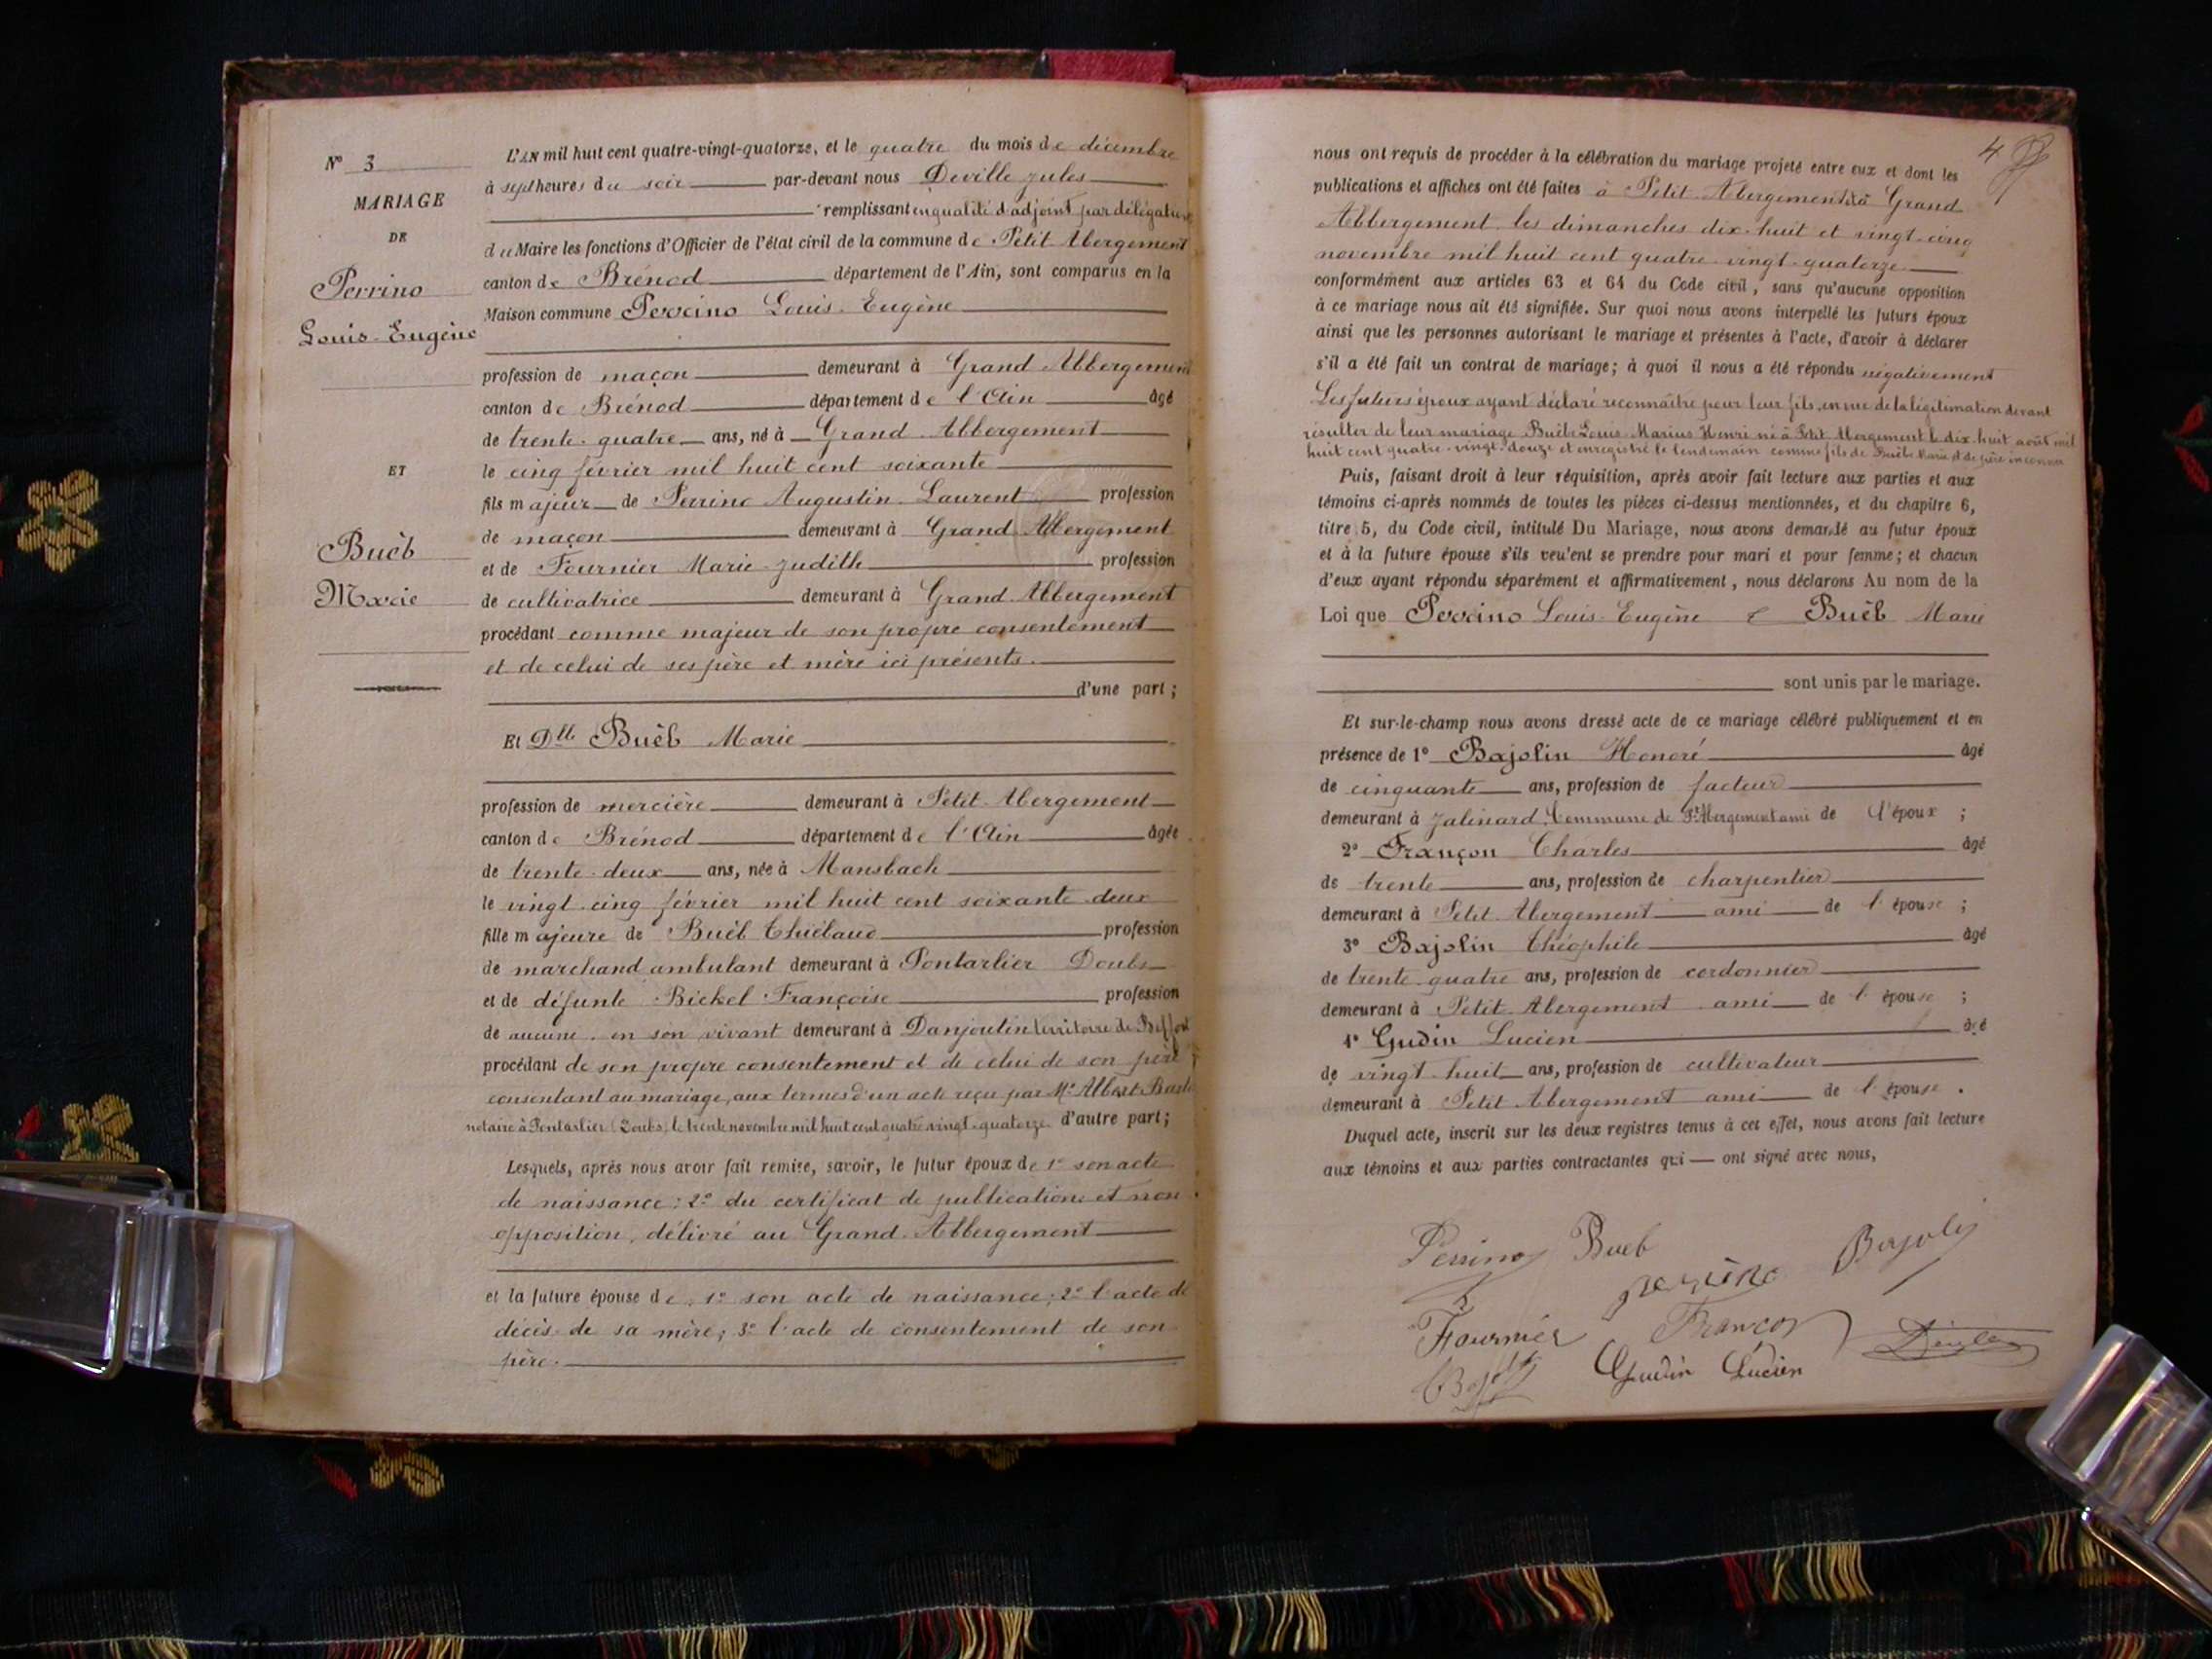 N° 3
MARIAGE
DE
Perrino
Louis-Eugène
ET
Buèb
Marie
L'AN mil huit cent quatre-vingt-quatorze, et le quatre du mois de décembre
à sept heures du soir par-devant nous Deville Jules
remplissant en qualité d'adjoint par délégation
du Maire les fonctions d'Officier de l'état civil de la commune de Petit Abergement
canton de Brénod département de l'Ain, sont comparus en la
Maison commune Perrino Louis-Eugène
profession de maçon demeurant à Grand Abbergement
canton de Brénod département de l'Ain âgé
de trente-quatre ans, né à Grand Abbergement
le cinq février mil huit cent soixante
fils majeur de Perrino Augustin-Laurent profession
de maçon demeurant à Grand Abbergement
et de Fournier Marie-Judith profession
de cultivatrice demeurant à Grand-Abbergement
procédant comme majeur de son propre consentement
et de celui de ses père et mère ici présents.
d'une part ;
Et Dlle Buèb Marie
profession de mercière demeurant à Petit-Abergement
canton de Brénod département de l'Ain âgée
de trente-deux ans, née à Mansbach
le vingt-cinq février mil huit cent soixante-deux
fille majeure de Buèb Thiébaud profession
de marchand ambulant demeurant à Pontarlier Doubs
et de défunte Bickel Françoise profession
de aucune en son vivant demeurant à Danjoutin territoire de Belfort
procédant de son propre consentement et de celui de son père
consentant au mariage, aux termes d'un acte reçu par Me Albert
notaire à Pontarlier (Doubs) le trente novembre mil huit cent quatre-vingt-quatorze d'autre part ;
Lesquels, après nous avoir fait remise, savoir, le futur époux de 1° son acte
de naissance ; 2° du certificat de publications et non
opposition, délivré au Grand-Abbergement
et la future épouse de 1° son acte de naissance ; 2° l'acte de
décès de sa mère ; 3° l'acte de consentement de son
père.
4
nous ont requis de procéder à la célébration du mariage projeté entre eux et dont les
publications et affiches ont été faites à Petit-Abergement et à Grand
Abbergement les dimanches dix-huit et vingt-cinq
novembre mil huit cent quatre-vingt-quatorze
conformément aux articles 63 et 64 du Code civil, sans qu'aucune opposition
à ce mariage nous ait été signifiée. Sur quoi nous avons interpellé les futurs époux
ainsi que les personnes autorisant le mariage et présentes à l'acte, d'avoir à déclarer
s'il a été fait un contrat de mariage ; à quoi il nous a été répondu négativement
Les futurs époux ayant déclaré reconnaître pour leur fils, en vue de la légitimation devant
résulter de leur mariage Buèb Louis-Marius Henri né à Petit Abergement le dix-huit août mil
huit cent quatre-vingt-douze et enregistré le lendemain comme fils de Buèb Marie et de père inconnu
Puis, faisant droit à leur réquisition, après avoir fait lecture aux parties et aux
témoins ci-après nommés de toutes les pièces ci-dessus mentionnées, et du chapitre 6,
titre 5, du Code civil, intitulé Du Mariage, nous avons demandé au futur époux
et à la future épouse s'ils veulent se prendre pour mari et pour femme ; et chacun
d'eux ayant répondu séparément et affirmativement, nous déclarons Au nom de la
Loi que Perrino Louis-Eugène & Buèb Marie
sont unis par le mariage.
Et sur-le-champ nous avons dressé acte de ce mariage célébré publiquement et en
présence de 1° Bajolin Honoré âgé
de cinquante ans, profession de facteur
demeurant à Jalinard, Commune de Pt Abergement ami de l'époux ;
2° Françon Charles âgé
de trente ans, profession de charpentier
demeurant à Petit-Abergement ami de l'épouse ;
3° Bajolin Théophile âgé
de trente-quatre ans, profession de cordonnier
demeurant à Petit-Abergement ami de l'épouse ;
4° Gudin Lucien âgé
de vingt-huit ans, profession de cultivateur
demeurant à Petit-Abergement ami de l'épouse.
Duquel acte, inscrit sur les deux registres tenus à cet effet, nous avons fait lecture
aux témoins et aux parties contractantes qui — ont signé avec nous,
Perrino Bueb Bajolin
Fournier Françon
Gudin Lucien